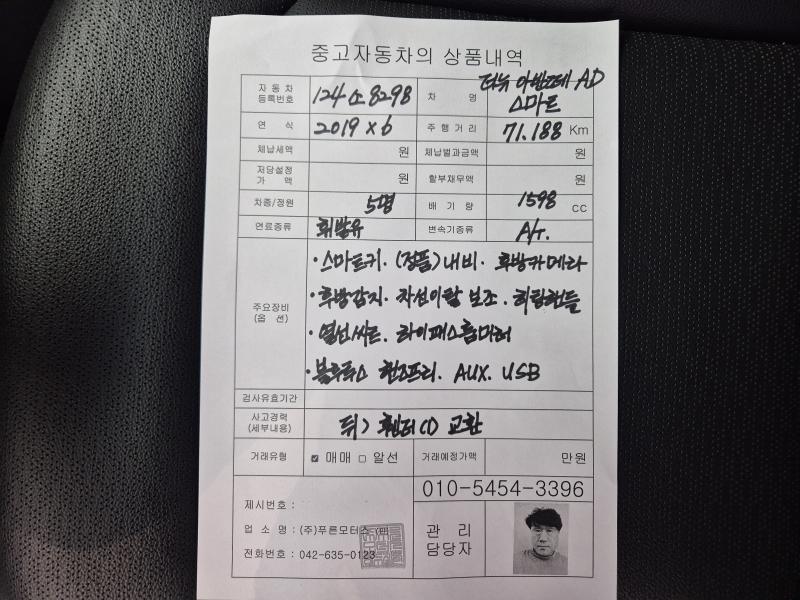 중고자동차의 상품내역
자동차 등록번호 124소8298 차 명 더뉴 아반떼 AD 스마트
연 식 2019 x 6 주행거리 71.188 Km
체납세액 원 체납벌과금액 원
저당설정 가 액 원 할부채무액 원
차종/정원 5명 배 기 량 1598 cc
연료종류 휘발유 변속기종류 A/T.
주요장비 (옵 션)
· 스마트키. (정품)내비. 후방카메라
· 후방감지. 차선이탈 보조. 히팅핸들
· 열선씨트. 하이패스룸미러
· 블루투스 핸즈프리. AUX. USB
검사유효기간
사고경력 (세부내용) 뒤) 휀더(1) 교환
거래유형 ☑ 매매 □ 알선 거래예정가액 만원
010-5454-3396
제시번호 :
업 소 명 : (주)푸른모터스 (인)
전화번호 : 042-635-0123
관 리 담당자